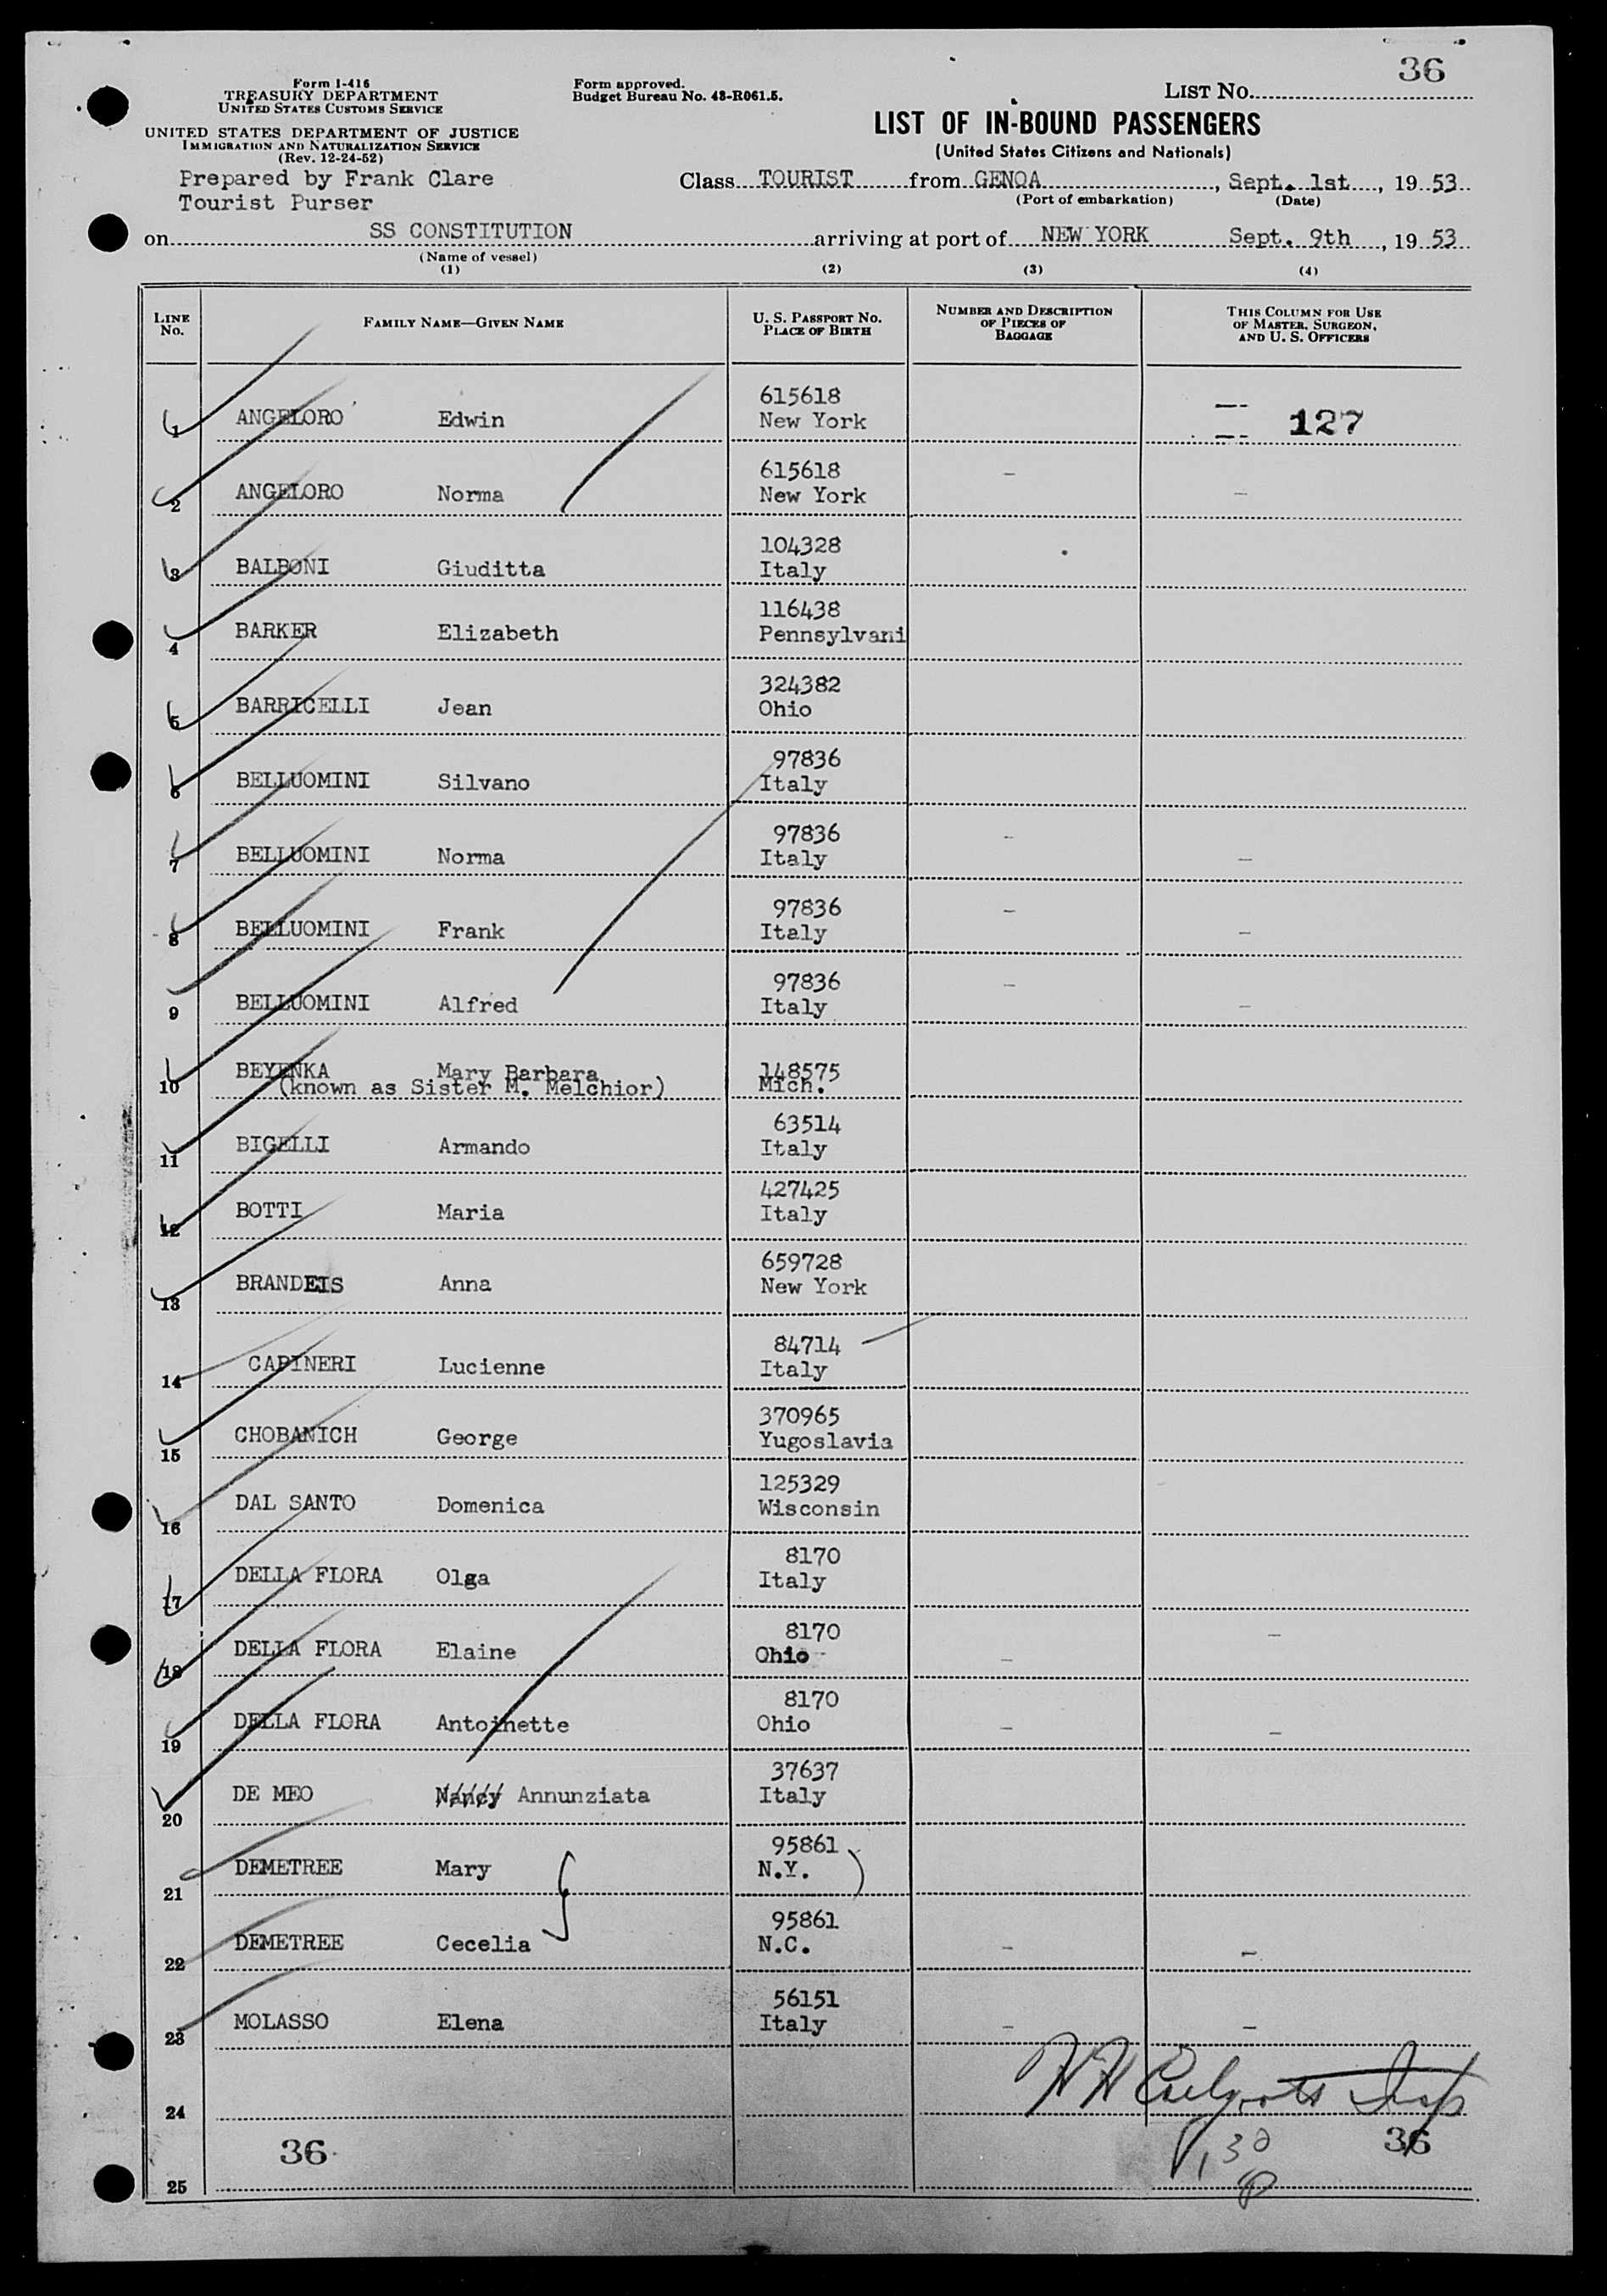 36
Form I-416
TREASURY DEPARTMENT
UNITED STATES CUSTOMS SERVICE
Form approved.
Budget Bureau No. 43-R061.5.
LIST NO.
UNITED STATES DEPARTMENT OF JUSTICE
IMMIGRATION AND NATURALIZATION SERVICE
(Rev. 12-24-52)
LIST OF IN-BOUND PASSENGERS
(United States Citizens and Nationals)
Prepared by Frank Clare
Tourist Purser
Class TOURIST from GENOA, Sept. 1st, 19 53
(Port of embarkation) (Date)
on SS CONSTITUTION arriving at port of NEW YORK Sept. 9th, 19 53
(Name of vessel)
(1) (2) (3) (4)
LINE No.
FAMILY NAME—GIVEN NAME
U. S. PASSPORT NO. PLACE OF BIRTH
NUMBER AND DESCRIPTION OF PIECES OF BAGGAGE
THIS COLUMN FOR USE OF MASTER, SURGEON, AND U. S. OFFICERS
615618
1 ANGELORO Edwin New York 127
615618
2 ANGELORO Norma New York
104328
3 BALBONI Giuditta Italy
116438
4 BARKER Elizabeth Pennsylvani
324382
5 BARRICELLI Jean Ohio
97836
6 BELLUOMINI Silvano Italy
97836
7 BELLUOMINI Norma Italy
97836
8 BELLUOMINI Frank Italy
97836
9 BELLUOMINI Alfred Italy
BEYENKA Mary Barbara 148575
10 (known as Sister M. Melchior) Mich.
63514
11 BIGELLI Armando Italy
427425
12 BOTTI Maria Italy
659728
13 BRANDEIS Anna New York
84714
14 CAPINERI Lucienne Italy
370965
15 CHOBANICH George Yugoslavia
125329
16 DAL SANTO Domenica Wisconsin
8170
17 DELLA FLORA Olga Italy
8170
18 DELLA FLORA Elaine Ohio
8170
19 DELLA FLORA Antoinette Ohio
37637
20 DE MEO Nancy Annunziata Italy
95861
21 DEMETREE Mary N.Y.
95861
22 DEMETREE Cecelia N.C.
56151
23 MOLASSO Elena Italy
24
36 36
25